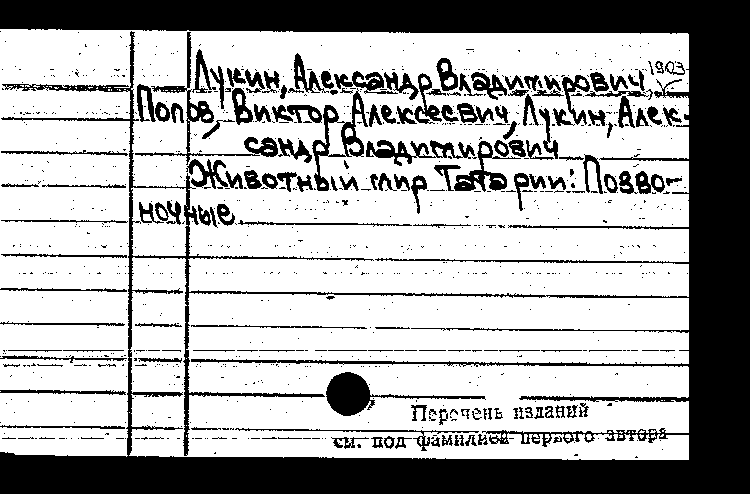 Лукин, Александр Владимирович, 1903-
Попов, Виктор Алексеевич, Лукин, Алек-
сандр Владимирович
Животный мир Татарии: Позво-
ночные.
Перечень изданий
см. под фамилией первого автора